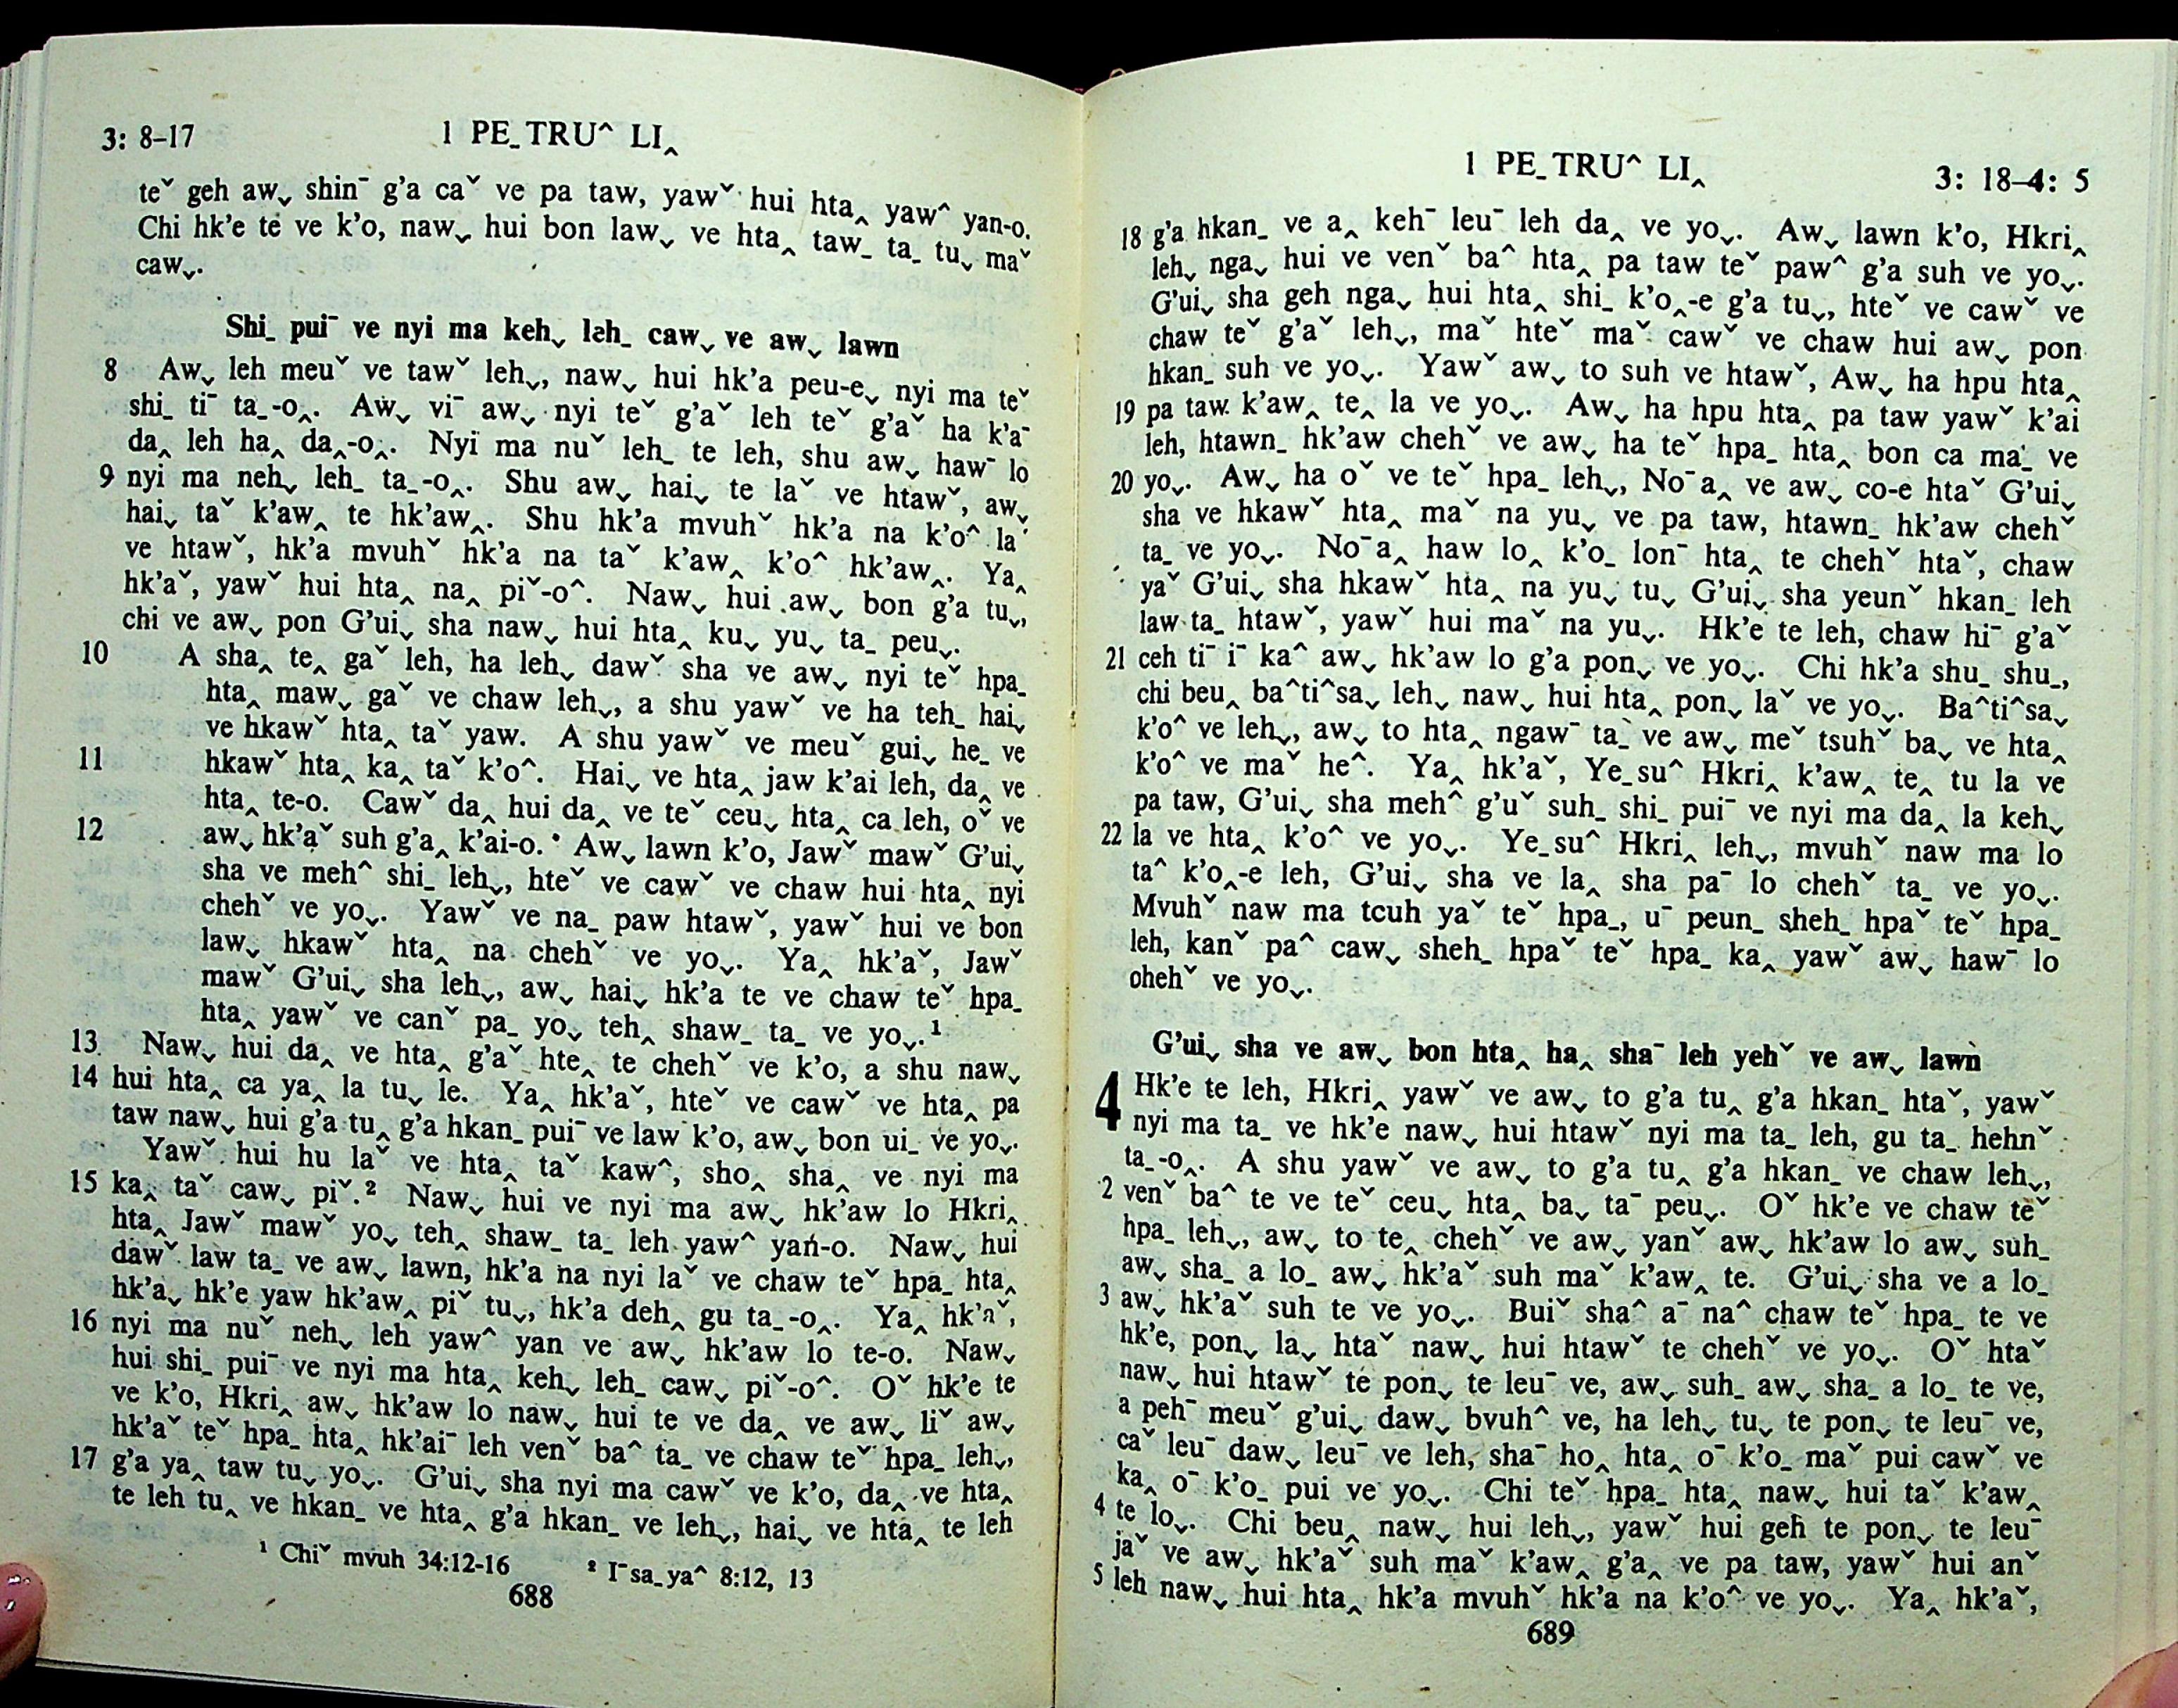 3: 8–17
1 PE˗TRU^ LI‸
teˇ geh aw ̬ shin¯ g’a caˇ ve pa taw, yawˇ hui hta‸ yaw^ yan-o.
Chi hk’e te ve k’o, naw ̬ hui bon law ̬ ve hta‸ taw˗ ta˗ tu ̬ maˇ
caw ̬.
Shi˗ pui¯ ve nyi ma keh ̬ leh˗ caw ̬ ve aw ̬ lawn
8 Aw ̬ leh meuˇ ve tawˇ leh ̬, naw ̬ hui hk’a peu-e ̬ nyi ma teˇ
shi˗ ti¯ ta˗-o‸. Aw ̬ vi¯ aw ̬ nyi teˇ g’aˇ leh teˇ g’aˇ ha k’a¯
da‸ leh ha‸ da‸-o‸. Nyi ma nuˇ leh˗ te leh, shu aw ̬ haw¯ lo
9 nyi ma neh ̬ leh˗ ta˗-o‸. Shu aw ̬ hai ̬ te laˇ ve htawˇ, aw ̬
hai ̬ taˇ k’aw‸ te hk’aw‸. Shu hk’a mvuhˇ hk’a na k’o^ laˇ
ve htawˇ, hk’a mvuhˇ hk’a na taˇ k’aw‸ k’o^ hk’aw‸. Ya‸
hk’aˇ, yawˇ hui hta‸ na‸ piˇ-o^. Naw ̬ hui aw ̬ bon g’a tu ̬,
chi ve aw ̬ pon G’ui ̬ sha naw ̬ hui hta‸ ku ̬ yu ̬ ta˗ peu ̬.
10 A sha‸ te‸ gaˇ leh, ha leh ̬ dawˇ sha ve aw ̬ nyi teˇ hpa˗
hta‸ maw ̬ gaˇ ve chaw leh ̬, a shu yawˇ ve ha teh˗ hai ̬
ve hkawˇ hta‸ taˇ yaw. A shu yawˇ ve meuˇ gui ̬ he˗ ve
11 hkawˇ hta‸ ka‸ taˇ k’o^. Hai ̬ ve hta‸ jaw k’ai leh, da‸ ve
hta‸ te-o. Cawˇ da‸ hui da‸ ve teˇ ceu ̬ hta‸ ca leh, oˇ ve
12 aw ̬ hk’aˇ suh g’a‸ k’ai-o. Aw ̬ lawn k’o, Jawˇ mawˇ G’ui ̬
sha ve meh^ shi˗ leh ̬, hteˇ ve cawˇ ve chaw hui hta‸ nyi
chehˇ ve yo ̬. Yawˇ ve na˗ paw htawˇ, yawˇ hui ve bon
law ̬ hkawˇ hta‸ na chehˇ ve yo ̬. Ya‸ hk’aˇ, Jawˇ
mawˇ G’ui ̬ sha leh ̬, aw ̬ hai ̬ hk’a te ve chaw teˇ hpa˗
hta‸ yawˇ ve canˇ pa˗ yo ̬ teh‸ shaw˗ ta˗ ve yo ̬.¹
13 Naw ̬ hui da‸ ve hta‸ g’aˇ hte‸ te chehˇ ve k’o, a shu naw ̬
14 hui hta‸ ca ya‸ la tu ̬ le. Ya‸ hk’aˇ, hteˇ ve cawˇ ve hta‸ pa
taw naw ̬ hui g’a tu‸ g’a hkan˗ pui¯ ve law k’o, aw ̬ bon ui˗ ve yo ̬.
Yawˇ hui hu laˇ ve hta‸ taˇ kaw^, sho‸ sha‸ ve nyi ma
15 ka‸ taˇ caw ̬ piˇ.² Naw ̬ hui ve nyi ma aw ̬ hk’aw lo Hkri‸
hta‸ Jawˇ mawˇ yo ̬ teh‸ shaw˗ ta˗ leh yaw^ yan-o. Naw ̬ hui
dawˇ law ta˗ ve aw ̬ lawn, hk’a na nyi laˇ ve chaw teˇ hpa˗ hta‸
hk’a ̬ hk’e yaw hk’aw‸ piˇ tu ̬, hk’a deh‸ gu ta˗-o‸. Ya‸ hk’aˇ,
16 nyi ma nuˇ neh ̬ leh yaw^ yan ve aw ̬ hk’aw lo te-o. Naw ̬
hui shi˗ pui¯ ve nyi ma hta‸ keh ̬ leh˗ caw ̬ piˇ-o^. Oˇ hk’e te
ve k’o, Hkri‸ aw ̬ hk’aw lo naw ̬ hui te ve da‸ ve aw ̬ liˇ aw ̬
hk’aˇ teˇ hpa˗ hta‸ hk’ai¯ leh venˇ ba^ ta˗ ve chaw teˇ hpa˗ leh ̬,
17 g’a ya‸ taw tu ̬ yo ̬. G’ui ̬ sha nyi ma cawˇ ve k’o, da‸ ve hta‸
te leh tu‸ ve hkan˗ ve hta‸ g’a hkan˗ ve leh ̬, hai ̬ ve hta‸ te leh
¹ Chiˇ mvuh 34:12-16 ² I¯sa˗ya^ 8:12, 13
688
1 PE˗TRU^ LI‸
3: 18–4: 5
18 g’a hkan˗ ve a‸ keh¯ leu¯ leh da‸ ve yo ̬. Aw ̬ lawn k’o, Hkri‸
leh ̬ nga ̬ hui ve venˇ ba^ hta‸ pa taw teˇ paw^ g’a suh ve yo ̬.
G’ui ̬ sha geh nga ̬ hui hta‸ shi˗ k’o‸-e g’a tu ̬, hteˇ ve cawˇ ve
chaw teˇ g’aˇ leh ̬, maˇ hteˇ maˇ cawˇ ve chaw hui aw ̬ pon
hkan˗ suh ve yo ̬. Yawˇ aw ̬ to suh ve htawˇ, Aw ̬ ha hpu hta‸
19 pa taw k’aw‸ te‸ la ve yo ̬. Aw ̬ ha hpu hta‸ pa taw yawˇ k’ai
leh, htawn˗ hk’aw chehˇ ve aw ̬ ha teˇ hpa˗ hta‸ bon ca ma˗ ve
20 yo ̬. Aw ̬ ha oˇ ve teˇ hpa˗ leh ̬, No¯a‸ ve aw ̬ co-e htaˇ G’ui ̬
sha ve hkawˇ hta‸ maˇ na yu ̬ ve pa taw, htawn˗ hk’aw chehˇ
ta˗ ve yo ̬. No¯a‸ haw lo‸ k’o˗ lon¯ hta‸ te chehˇ htaˇ, chaw
yaˇ G’ui ̬ sha hkawˇ hta‸ na yu ̬ tu ̬ G’ui ̬ sha yeunˇ hkan˗ leh
law ta˗ htawˇ, yawˇ hui maˇ na yu ̬. Hk’e te leh, chaw hi¯ g’aˇ
21 ceh ti¯ i¯ ka^ aw ̬ hk’aw lo g’a pon ̬ ve yo ̬. Chi hk’a shu˗ shu˗,
chi beu‸ ba^ti^sa ̬ leh ̬ naw ̬ hui hta‸ pon ̬ laˇ ve yo ̬. Ba^ti^sa ̬
k’o^ ve leh ̬, aw ̬ to hta‸ ngaw¯ ta˗ ve aw ̬ meˇ tsuhˇ ba ̬ ve hta‸
k’o^ ve maˇ he^. Ya‸ hk’aˇ, Ye˗su^ Hkri‸ k’aw‸ te‸ tu la ve
pa taw, G’ui ̬ sha meh^ g’uˇ suh˗ shi˗ pui¯ ve nyi ma da‸ la keh ̬
22 la ve hta‸ k’o^ ve yo ̬. Ye˗su^ Hkri‸ leh ̬, mvuhˇ naw ma lo
ta^ k’o‸-e leh, G’ui ̬ sha ve la‸ sha pa¯ lo chehˇ ta˗ ve yo ̬.
Mvuhˇ naw ma tcuh yaˇ teˇ hpa˗, u¯ peun˗ sheh˗ hpaˇ teˇ hpa˗
leh, kanˇ pa^ caw ̬ sheh˗ hpaˇ teˇ hpa˗ ka‸ yawˇ aw ̬ haw¯ lo
ohehˇ ve yo ̬.
G’ui ̬ sha ve aw ̬ bon hta‸ ha‸ sha¯ leh yehˇ ve aw ̬ lawn
4 Hk’e te leh, Hkri‸ yawˇ ve aw ̬ to g’a tu‸ g’a hkan˗ htaˇ, yawˇ
nyi ma ta˗ ve hk’e naw ̬ hui htawˇ nyi ma ta˗ leh, gu ta˗ hehnˇ
ta˗-o‸. A shu yawˇ ve aw ̬ to g’a tu‸ g’a hkan˗ ve chaw leh ̬,
2 venˇ ba^ te ve teˇ ceu ̬ hta‸ ba ̬ ta¯ peu ̬. Oˇ hk’e ve chaw teˇ
hpa˗ leh ̬, aw ̬ to te‸ chehˇ ve aw ̬ yanˇ aw ̬ hk’aw lo aw ̬ suh˗
aw ̬ sha˗ a lo˗ aw ̬ hk’aˇ suh maˇ k’aw‸ te. G’ui ̬ sha ve a lo˗
3 aw ̬ hk’aˇ suh te ve yo ̬. Buiˇ sha^ a¯ na^ chaw teˇ hpa˗ te ve
hk’e, pon ̬ la ̬ htaˇ naw ̬ hui htawˇ te chehˇ ve yo ̬. Oˇ htaˇ
naw ̬ hui htawˇ te pon ̬ te leu¯ ve, aw ̬ suh˗ aw ̬ sha˗ a lo˗ te ve,
a peh¯ meuˇ g’ui ̬ daw ̬ bvuh^ ve, ha leh ̬ tu ̬ te pon ̬ te leu¯ ve,
caˇ leu¯ daw ̬ leu¯ ve leh, sha¯ ho‸ hta‸ o¯ k’o˗ maˇ pui cawˇ ve
ka‸ o¯ k’o˗ pui ve yo ̬. Chi teˇ hpa˗ hta‸ naw ̬ hui taˇ k’aw‸
4 te lo ̬. Chi beu‸ naw ̬ hui leh ̬, yawˇ hui geh te pon ̬ te leu¯
jaˇ ve aw ̬ hk’aˇ suh maˇ k’aw‸ g’a‸ ve pa taw, yawˇ hui anˇ
5 leh naw ̬ hui hta‸ hk’a mvuhˇ hk’a na k’o^ ve yo ̬. Ya‸ hk’aˇ,
689